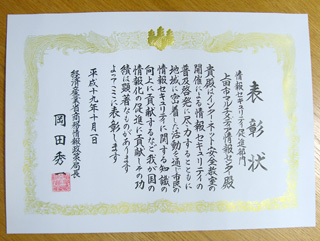 表彰状
情報セキュリティ促進部門
上田市マルチメディア情報センター殿
貴殿はインターネット安全教室の
開催による情報セキュリティの
普及啓発に尽力するとともに
地域に密着した活動を通じ市民の
情報セキュリティに関する知識の
向上に貢献するなど我が国の
情報化の促進に貢献しその功
績は顕著なものがあります
よってここに表彰します
平成十九年十月一日
経済産業省商務情報政策局長
岡田秀一